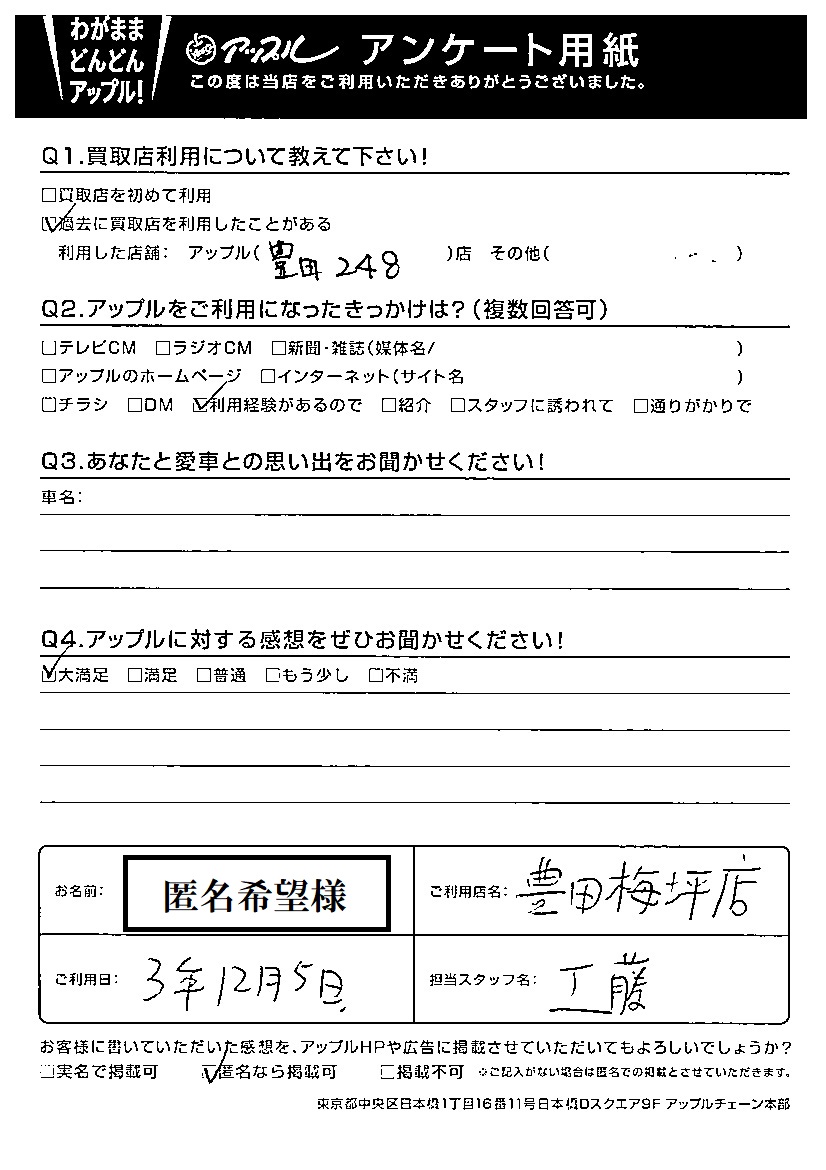 わがまま
どんどん
アップル!
アップル アンケート用紙
この度は当店をご利用いただきありがとうございました。
Q1.買取店利用について教えて下さい!
□買取店を初めて利用
☑過去に買取店を利用したことがある
利用した店舗: アップル(豊田248)店 その他( )
Q2.アップルをご利用になったきっかけは?(複数回答可)
□テレビCM □ラジオCM □新聞・雑誌(媒体名/ )
□アップルのホームページ □インターネット(サイト名 )
□チラシ □DM ☑利用経験があるので □紹介 □スタッフに誘われて □通りがかりで
Q3.あなたと愛車との思い出をお聞かせください!
車名:
Q4.アップルに対する感想をぜひお聞かせください!
☑大満足 □満足 □普通 □もう少し □不満
お名前: 匿名希望様
ご利用店名: 豊田梅坪店
ご利用日: 3年12月5日
担当スタッフ名: 工藤
お客様に書いていただいた感想を、アップルHPや広告に掲載させていただいてもよろしいでしょうか?
□実名で掲載可 ☑匿名なら掲載可 □掲載不可 ※ご記入がない場合は匿名での掲載とさせていただきます。
東京都中央区日本橋1丁目16番11号日本橋Dスクエア9F アップルチェーン本部